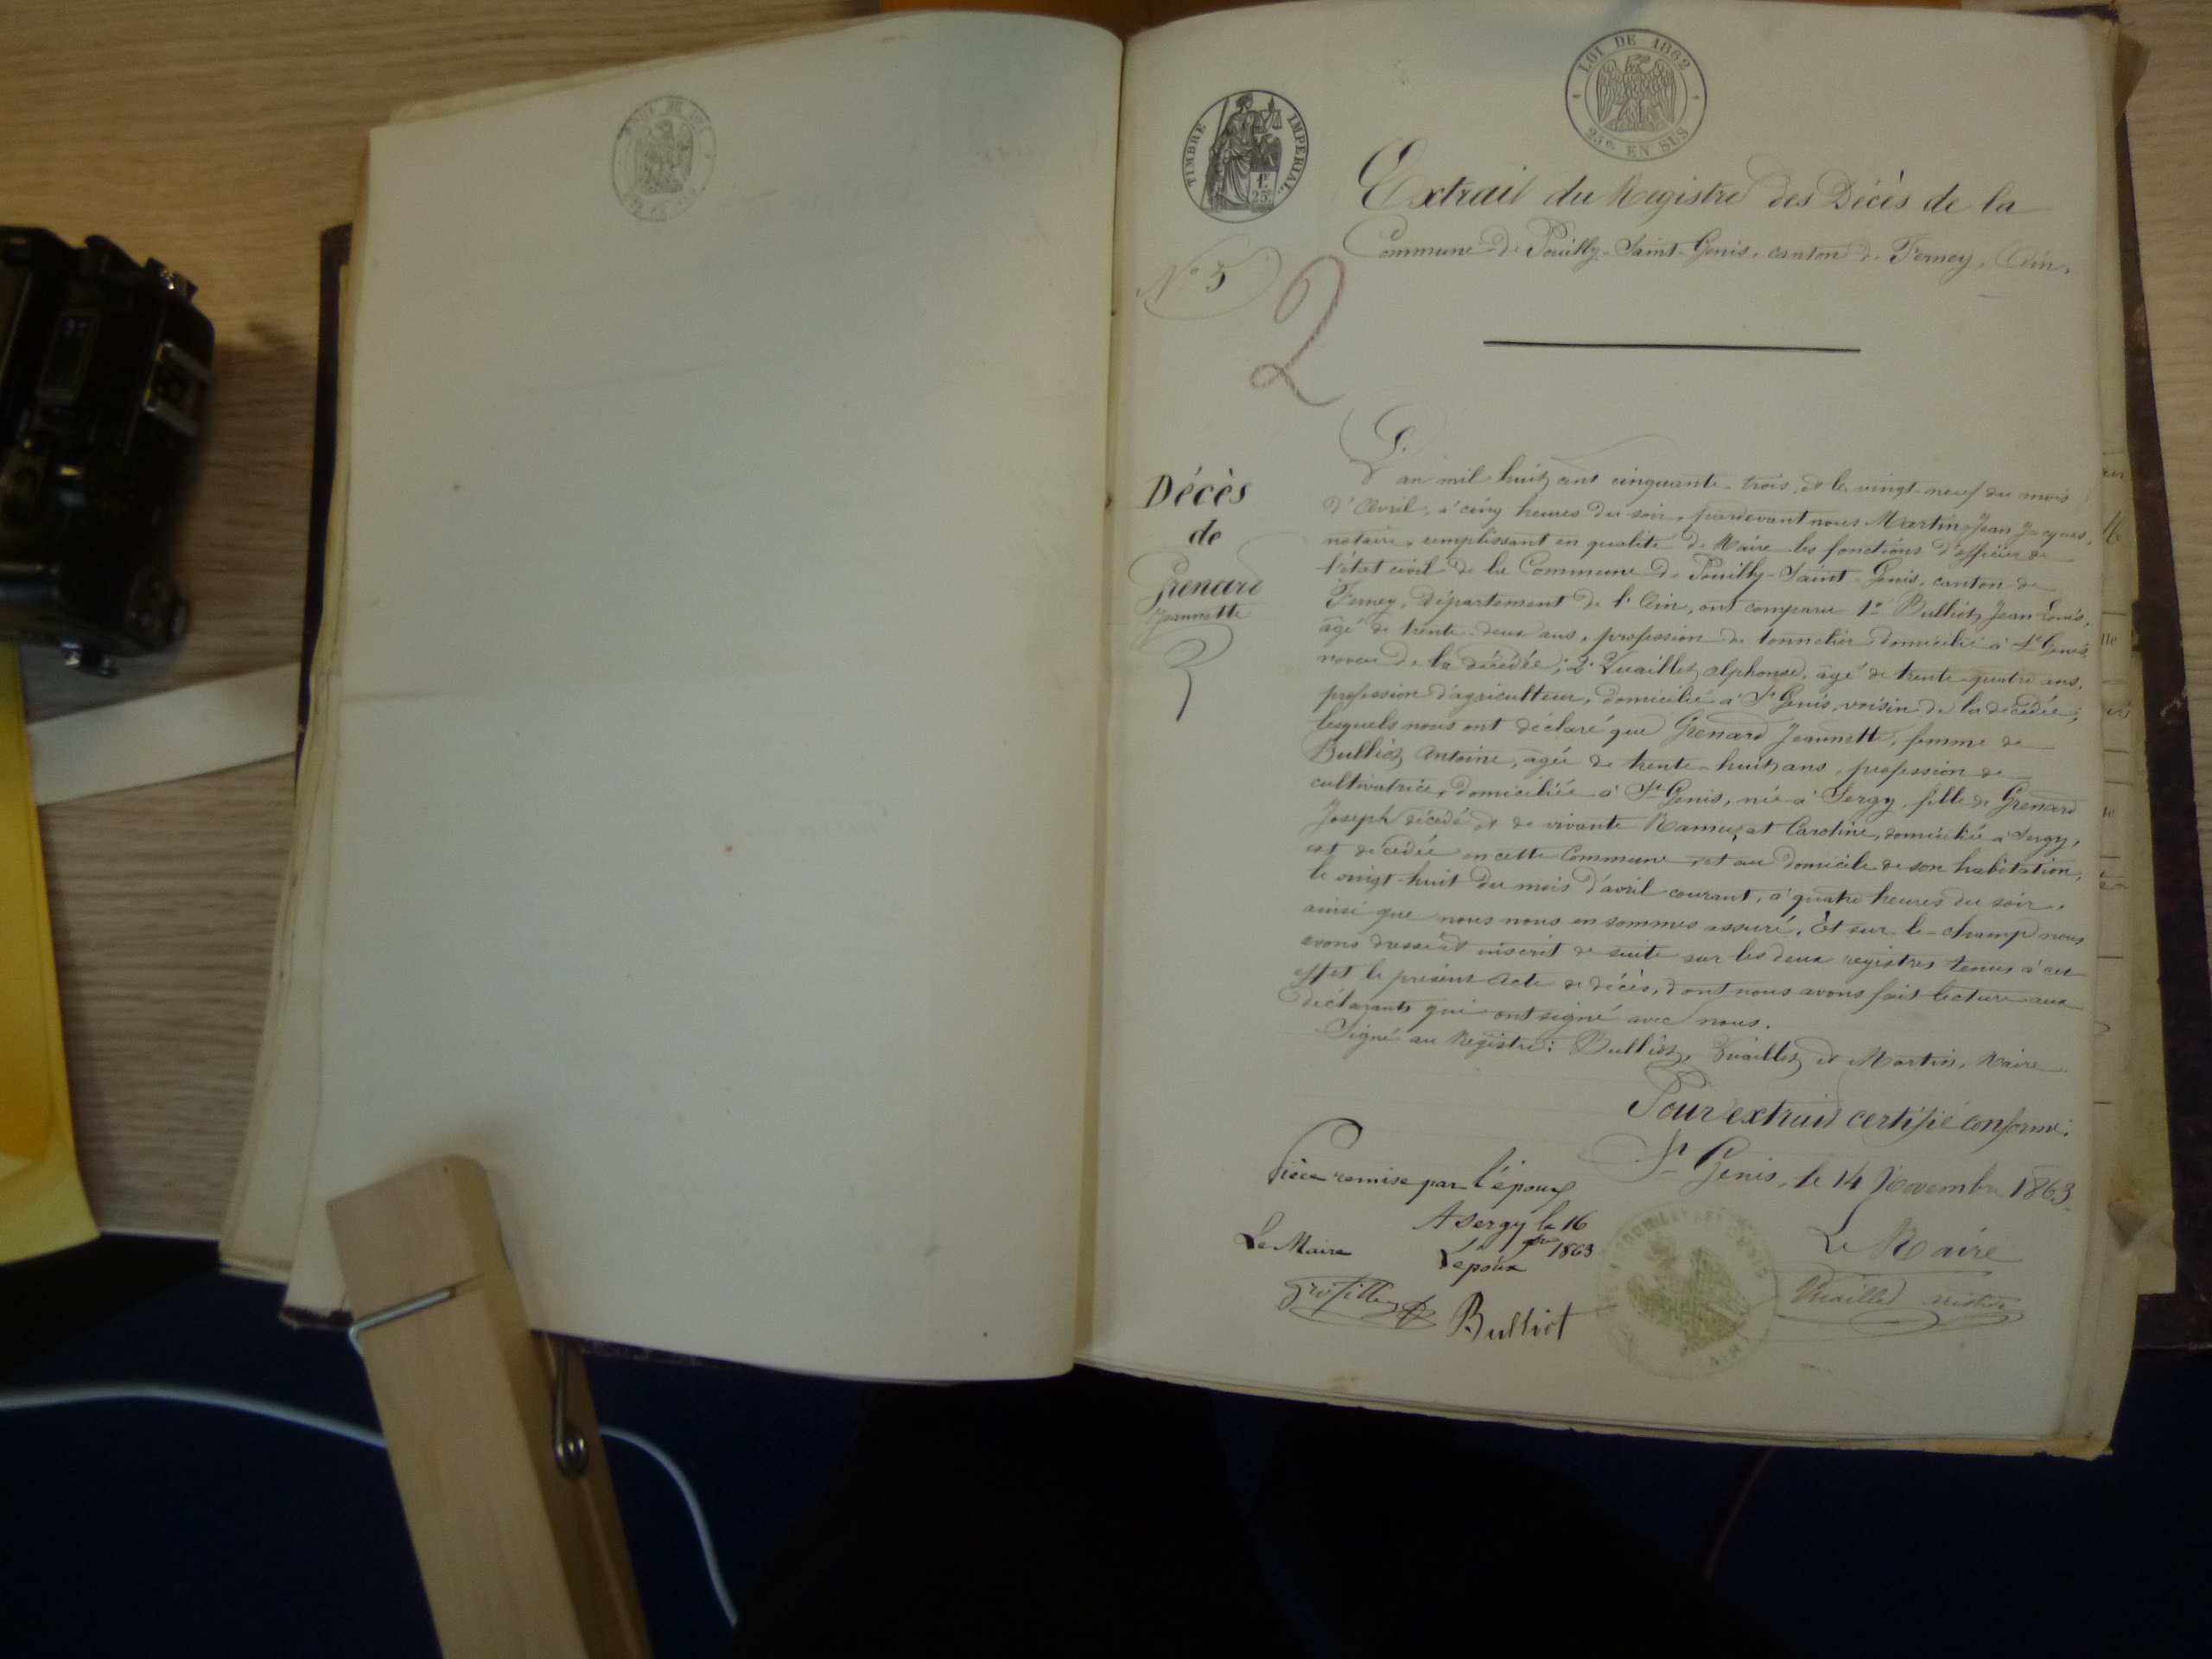 LOI DE 1862
25c. EN SUS
TIMBRE IMPERIAL
1f. 25c.
Extrait du Registre des Décès de la
Commune de Pouilly-Saint-Genis, canton de Ferney, Ain.
No 3
2
Décès
de
Grenard
Jeannette
3
L'an mil huit cent cinquante-trois, et le vingt-neuf du mois
d'Avril, à cinq heures du soir, pardevant nous Martin Jean Jacques,
notaire, remplissant en qualité de Maire les fonctions d'officier de
l'état civil de la Commune de Pouilly-Saint-Genis, canton de
Ferney, Département de l'Ain, ont comparu 1o Bulliot Jean Louis,
âgé de trente-deux ans, profession de tonnelier, domicilié à St Genis,
neveu de la décédée; 2o Vuaillet alphonse, âgé de trente-quatre ans,
profession d'agriculteur, domicilié à St Genis, voisin de la décédée;
lesquels nous ont déclaré que Grenard Jeannette, femme de
Bulliot Antoine, âgée de trente-huit ans, profession de
cultivatrice, domiciliée à St Genis, née à Sergy, fille de Grenard
Joseph décédé et de vivante Caroline, domiciliée à Sergy,
est décédée en cette Commune, et au domicile de son habitation,
le vingt-huit du mois d'avril courant, à quatre heures du soir,
ainsi que nous nous en sommes assuré. Et sur le-champ nous
avons dressé et inscrit de suite sur les deux registres tenus à cet
effet le présent Acte de décès, dont nous avons fait lecture aux
déclarants qui ont signé avec nous.
Signé au Registre: Bulliot, Vuaillet et Martin, Maire
Pour extrait certifié conforme:
St Genis, le 14 Novembre 1863.
Pièce remise par l'époux
A Sergy le 16
1863
Le Maire
L'époux
Le Maire
Bulliot